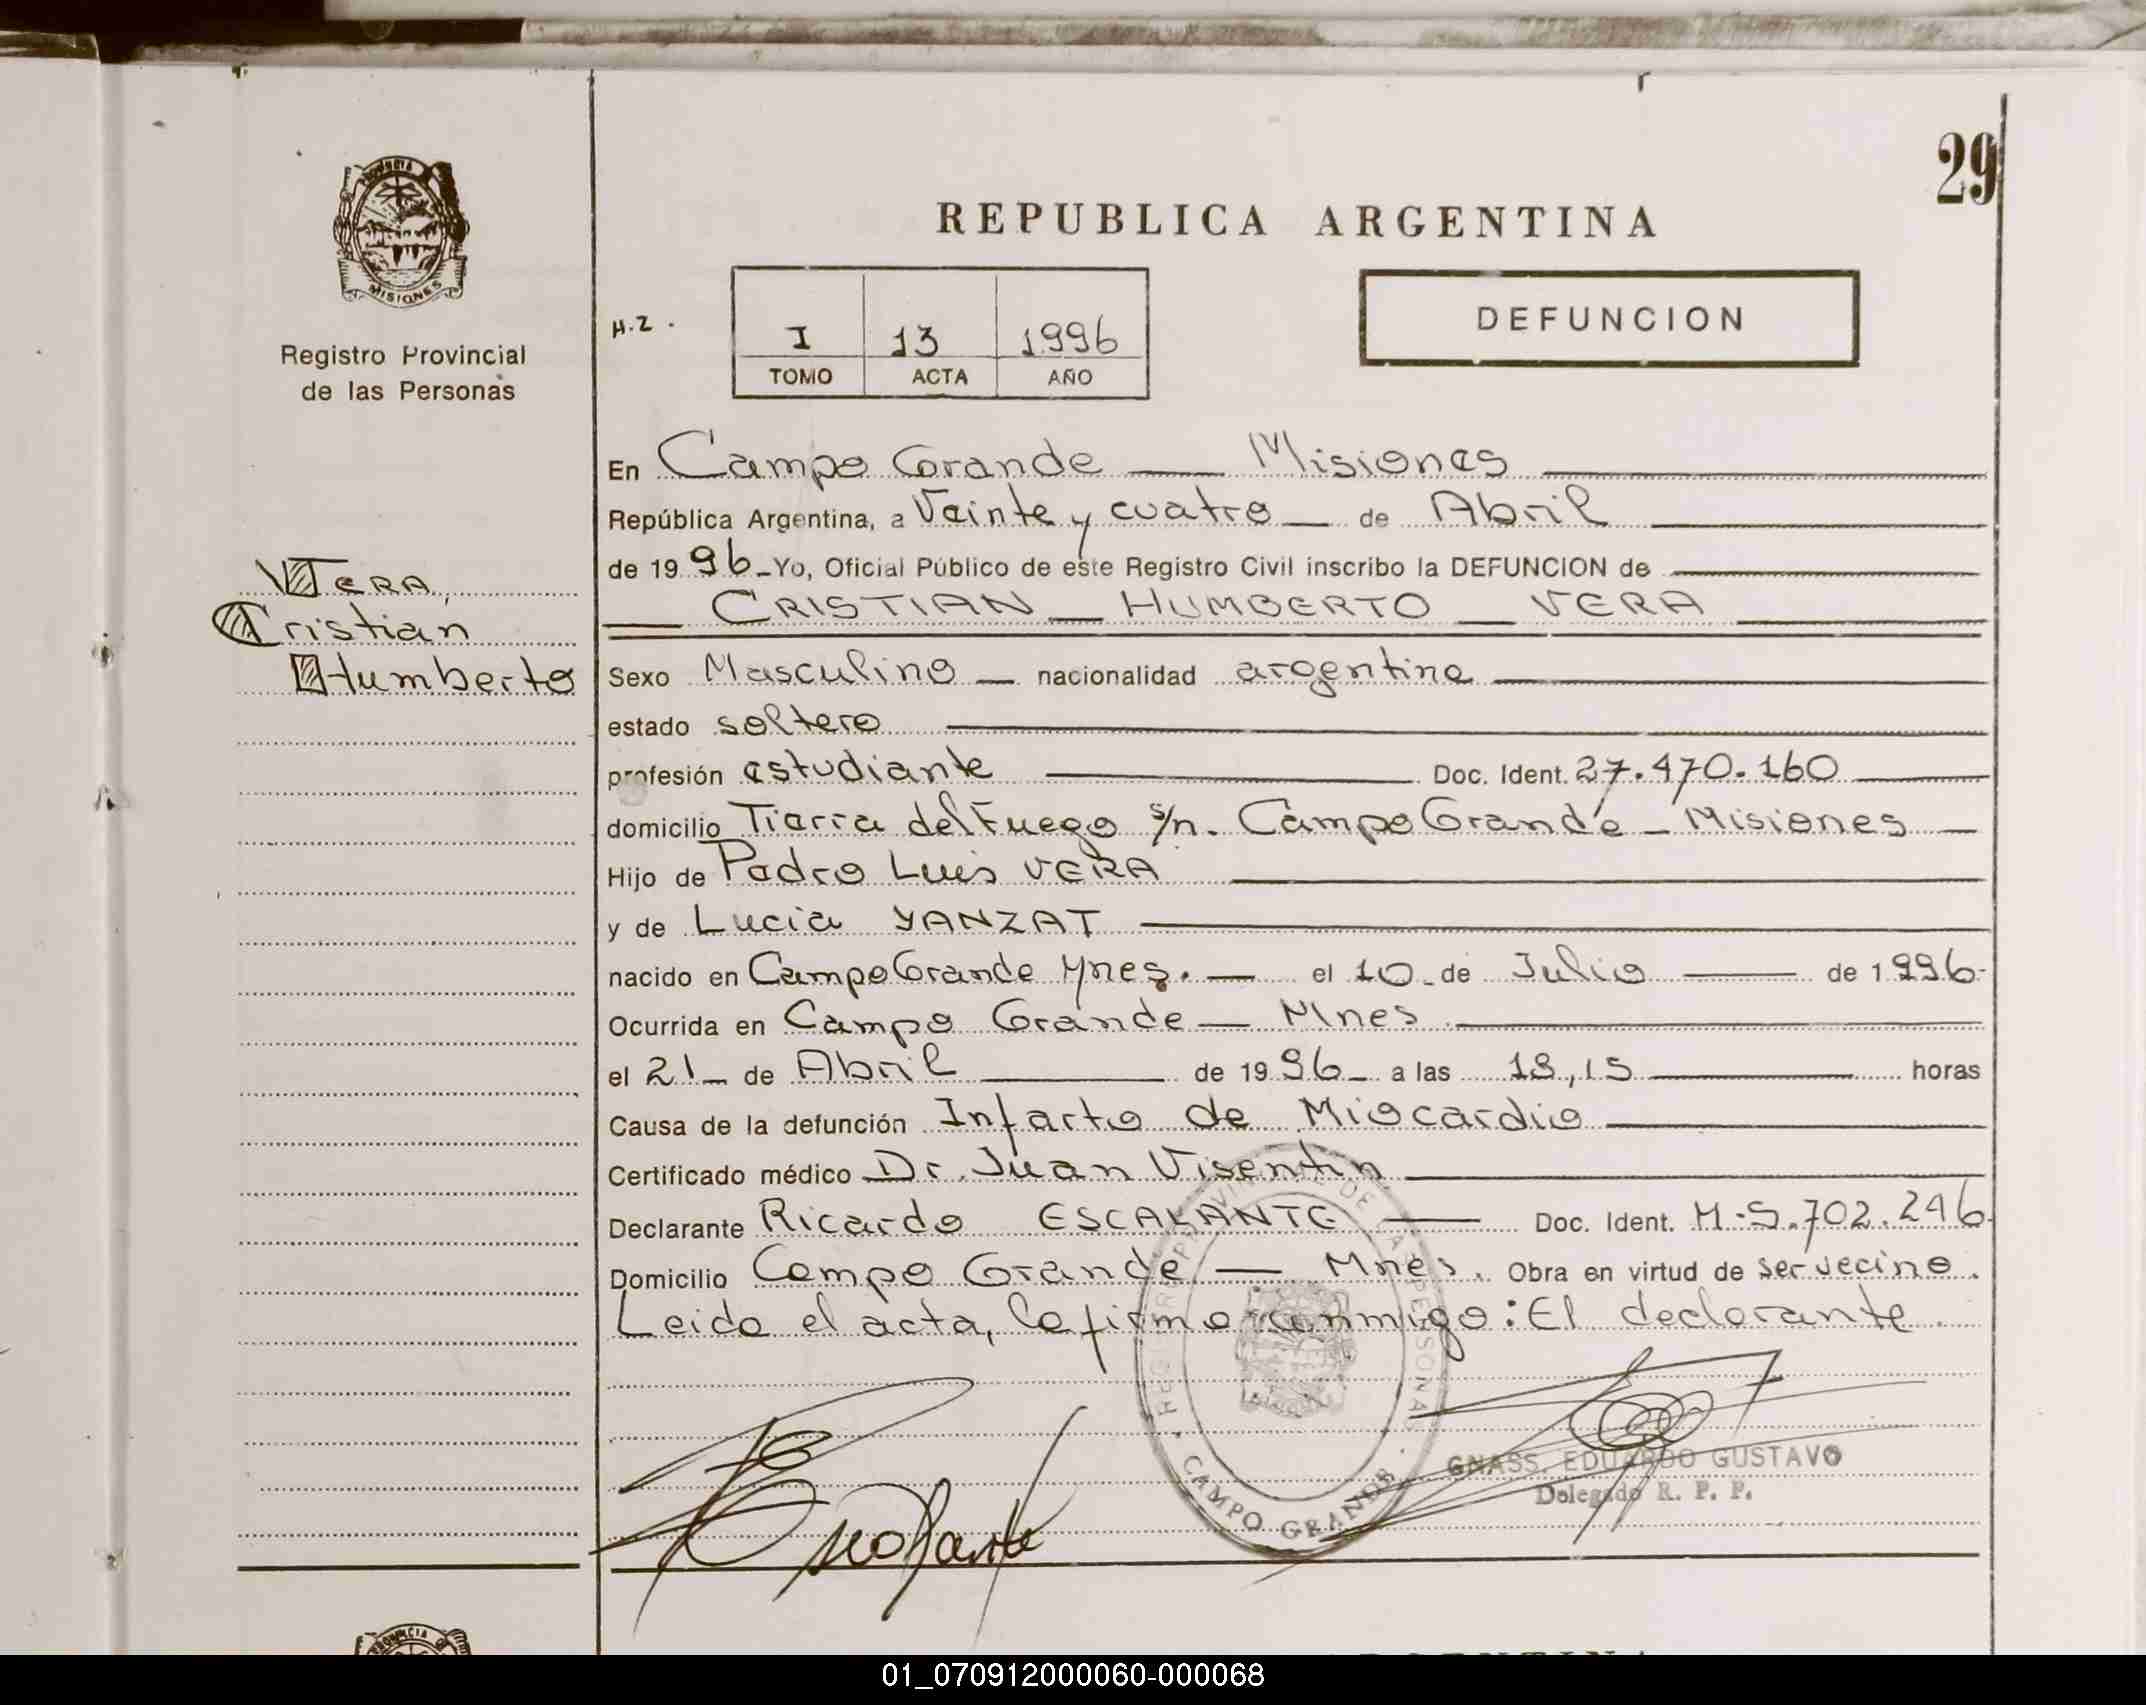 29
REPUBLICA ARGENTINA
PROVINCIA
MISIONES
Registro Provincial
de las Personas
H.Z.
I 13 1996
TOMO ACTA AÑO
DEFUNCION
VERA,
Cristian
Humberto
En Campo Grande — Misiones
República Argentina, a Veinte y cuatro — de Abril
de 1996 - Yo, Oficial Público de este Registro Civil inscribo la DEFUNCION de
CRISTIAN — HUMBERTO — VERA
Sexo Masculino — nacionalidad argentina
estado soltero
profesión estudiante Doc. Ident. 27.470.160
domicilio Tierra del Fuego s/n. Campo Grande - Misiones
Hijo de Pedro Luis VERA
y de Lucia YANZAT
nacido en Campo Grande Mnes. — el 10 - de Julio — de 1996-
Ocurrida en Campo Grande — Mnes
el 21 - de Abril — de 1996 - a las 18,15 horas
Causa de la defunción Infarto de Miocardio
Certificado médico Dr. Juan Visentin
Declarante Ricardo ESCALANTE — Doc. Ident. M.5.702.246.
Domicilio Campo Grande — Mnes. Obra en virtud de ser vecino.
Leida el acta, la firma conmigo: El declarante.
REGISTRO PROVINCIAL DE LAS PERSONAS
CAMPO GRANDE
GNASS, EDUARDO GUSTAVO
Delegado R. P. P.
PROVINCIA
01_070912000060-000068